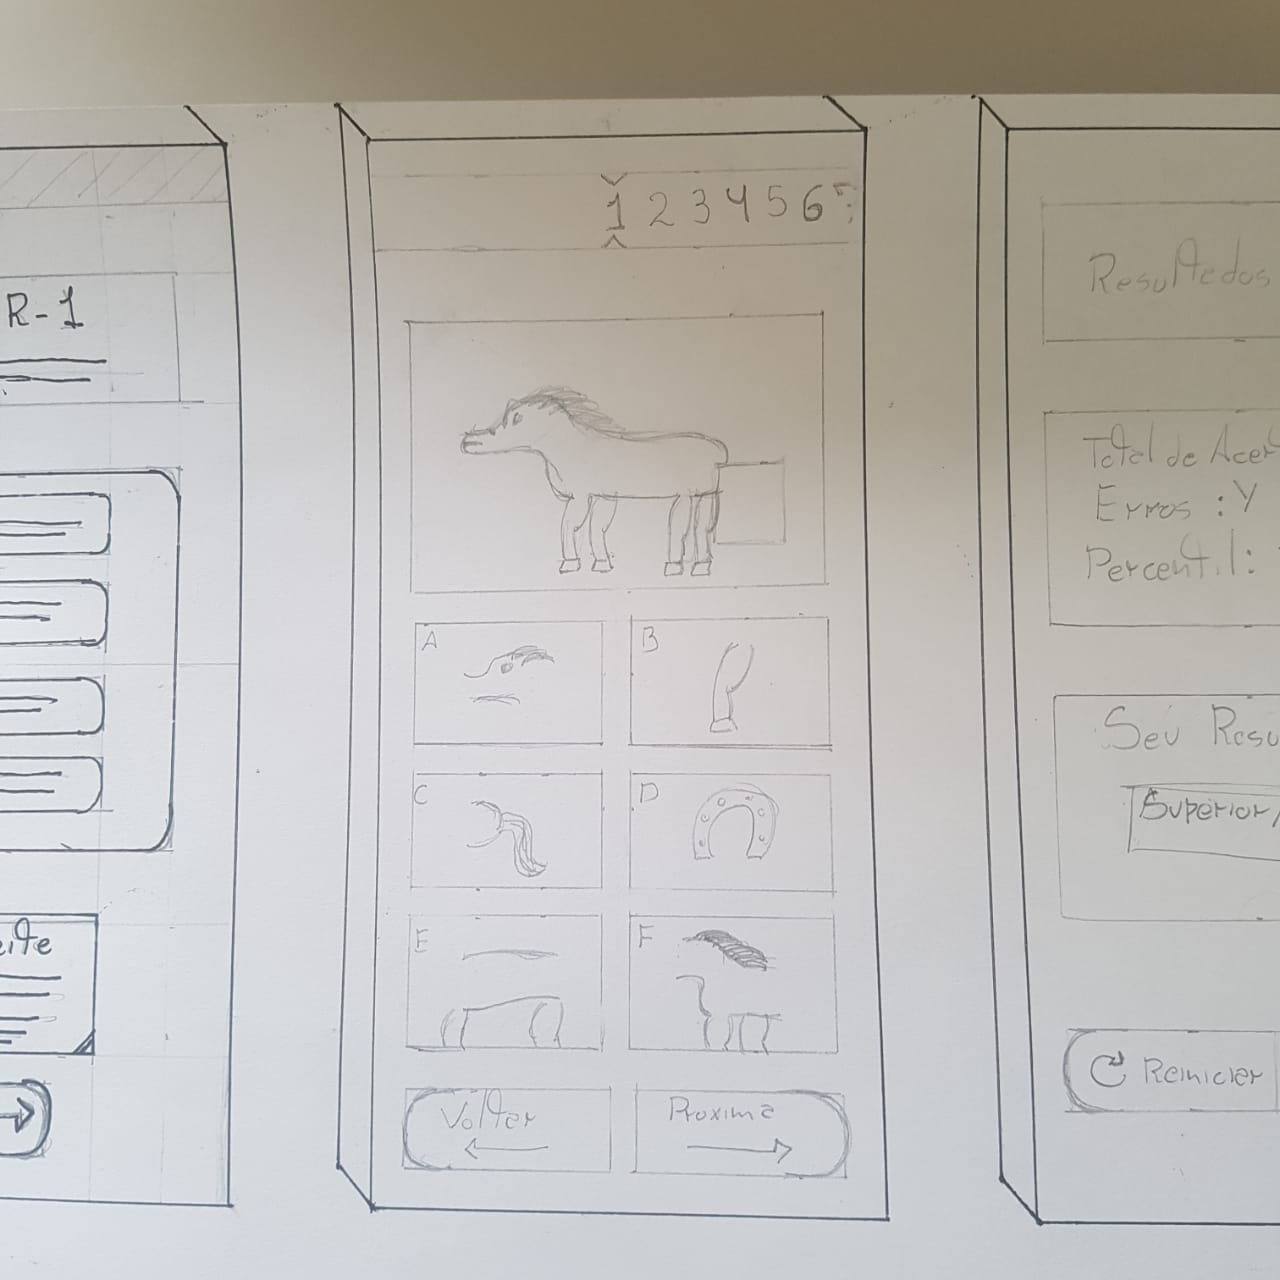 R-1
1 2 3 4 5 6
A
B
C
D
E
F
Voltar
Proxima
Resultados
Total de Acer
Erros : Y
Percentil:
Seu Resu
Superior/
Reiniciar